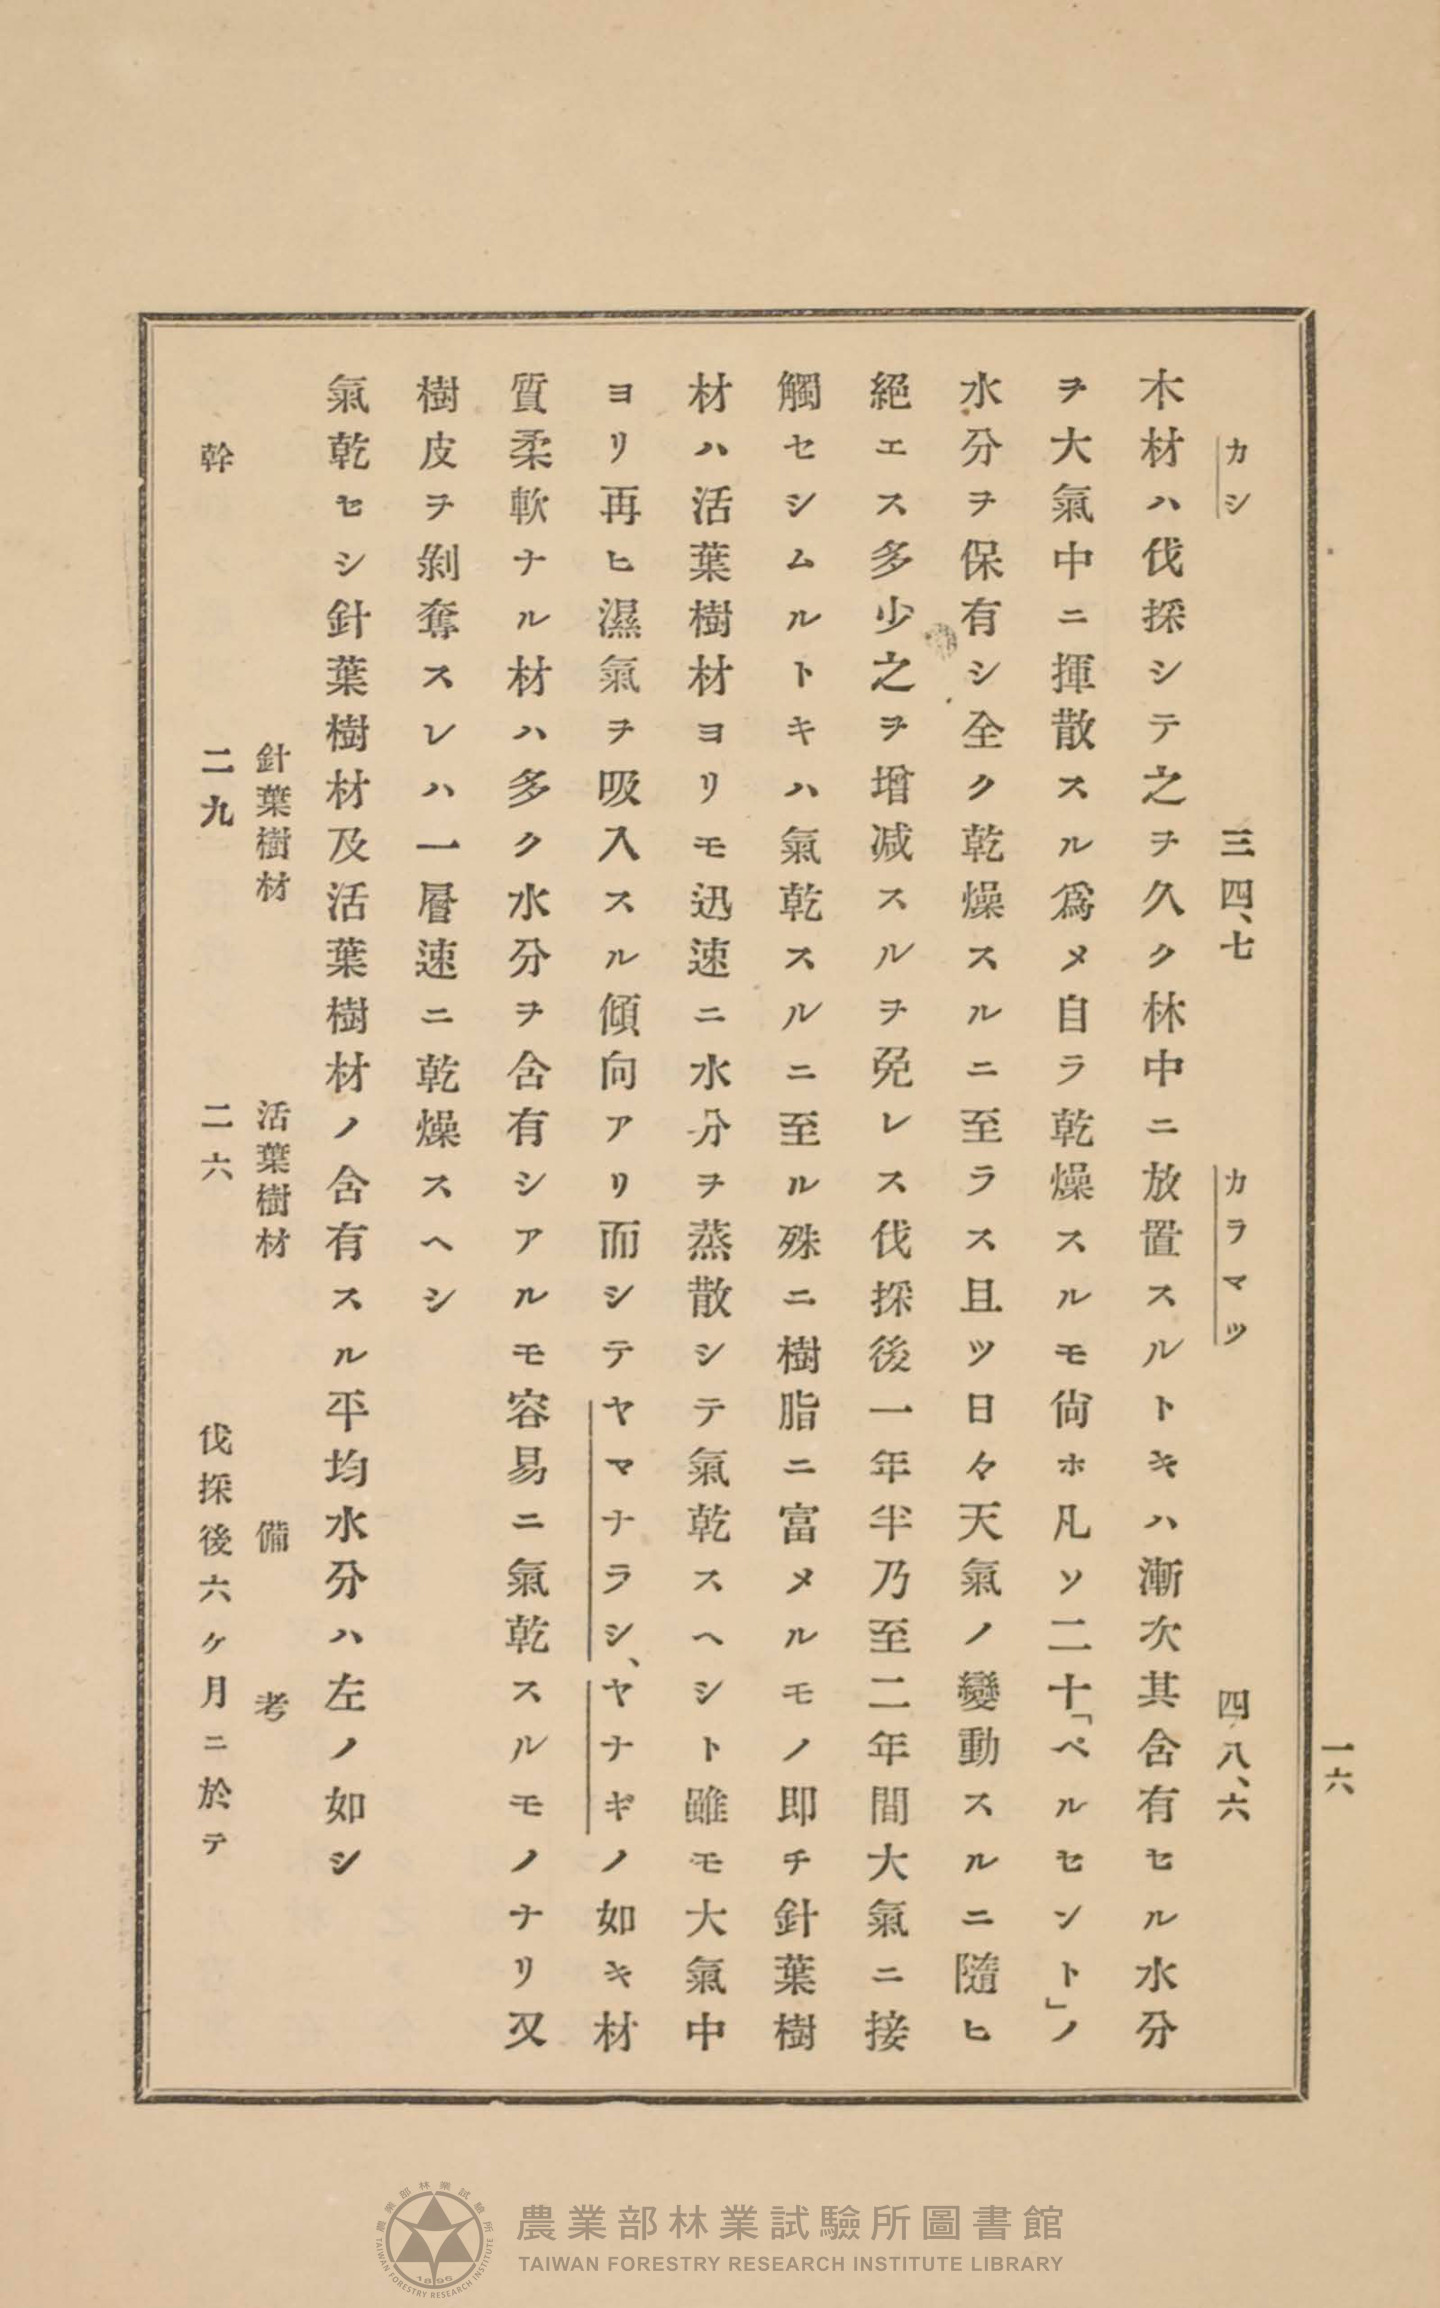 一六
カシ 三四、七 カラマツ 四八、六
木材ハ伐採シテ之ヲ久ク林中ニ放置スルトキハ漸次其含有セル水分
ヲ大氣中ニ揮散スル爲メ自ラ乾燥スルモ尙ホ凡ソ二十「ペルセント」ノ
水分ヲ保有シ全ク乾燥スルニ至ラス且ツ日々天氣ノ變動スルニ隨ヒ
絕エス多少之ヲ增減スルヲ免レス伐採後一年半乃至二年間大氣ニ接
觸セシムルトキハ氣乾スルニ至ル殊ニ樹脂ニ富メルモノ即チ針葉樹
材ハ活葉樹材ヨリモ迅速ニ水分ヲ蒸散シテ氣乾スヘシト雖モ大氣中
ヨリ再ヒ濕氣ヲ吸入スル傾向アリ而シテヤマナラシ、ヤナギノ如キ材
質柔軟ナル材ハ多ク水分ヲ含有シアルモ容易ニ氣乾スルモノナリ又
樹皮ヲ剝奪スレハ一層速ニ乾燥スヘシ
氣乾セシ針葉樹材及活葉樹材ノ含有スル平均水分ハ左ノ如シ
針葉樹材 活葉樹材 備考
幹 二九 二六 伐採後六ケ月ニ於テ
農業部林業試驗所圖書館
TAIWAN FORESTRY RESEARCH INSTITUTE LIBRARY
農業部林業試驗所
TAIWAN FORESTRY RESEARCH INSTITUTE
1896